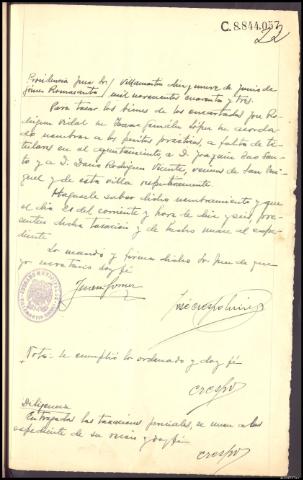 C.8.844.057
22
Providencia Juez Sr. / Villamartin diez y nueve de junio de
Gomez Romasanta / mil novecientos cuarenta y tres.
Para tasar los bienes de los encartados José Ro-
driguez Vidal y López se acordó
nombrar a los peritos prácticos, a falta de ti-
tulares en el ayuntamiento, a D. Joaquin San-
to y a D. Dario Rodriguez Vicente, vecinos de San Mi-
guel y de esta villa respectivamente.
Hagasele saber dicho nombramiento y que
el dia 20 del corriente y hora de diez y seis, pre-
senten dicha tasación y de hecho unase al expe-
diente
Lo mandó y firma dicho Sr. Juez de que
yo secretario doy fé
José Crespo
Nota. Se cumplió lo ordenado y doy fé
Crespo
Diligencia
Entregadas las tasaciones periciales, se unen a los
expediente de su razón y doy fé
Crespo